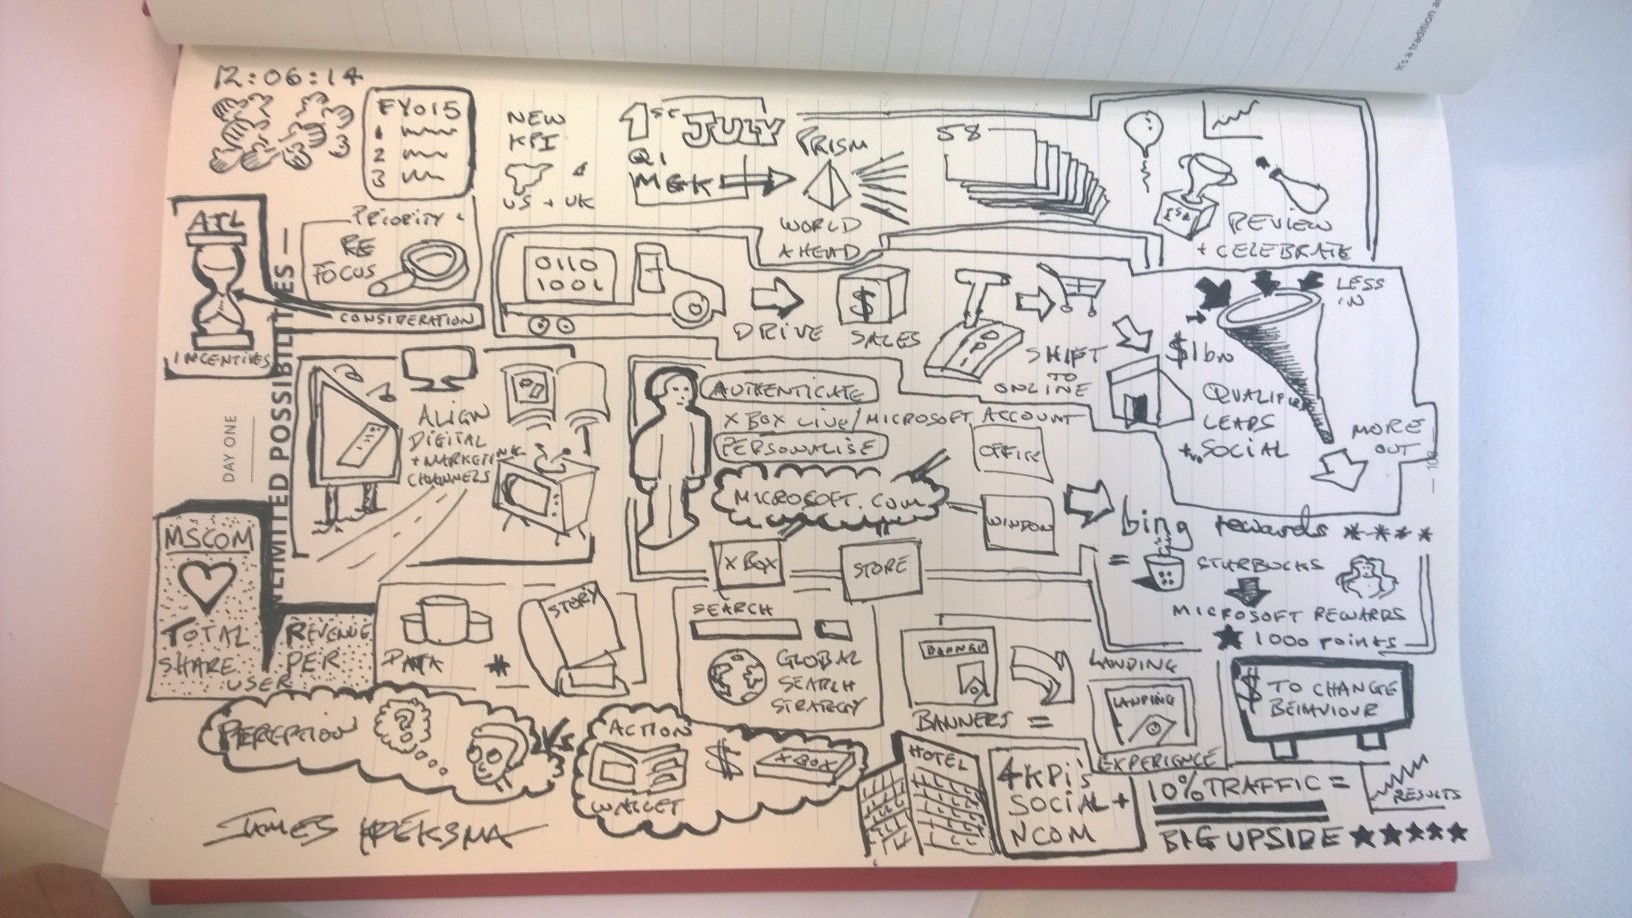 It's a tradition a
12:06:14
FY015
1
2
3
3
NEW
KPI
US + UK
1ST JULY
Q1
MGK
PRISM
WORLD
AHEAD
58
REVIEW
+ CELEBRATE
ATL
INCENTIVES
PRIORITY
RE
FOCUS
CONSIDERATION
0110
1001
DRIVE
$
SALES
SHIFT
TO
ONLINE
LESS
IN
$1bn
QUALIFIED
LEADS
+ SOCIAL
MORE
OUT
DAY ONE
UNLIMITED POSSIBILITIES
ALIGN
DIGITAL
+ MARKETING
CHANNELS
AUTHENTICATE
XBOX LIVE/MICROSOFT ACCOUNT
PERSONALISE
MICROSOFT.COM
OFFICE
WINDOW
XBOX
STORE
bing rewards ****
= STARBUCKS
MICROSOFT REWARDS
★ 1000 POINTS
MSCOM
TOTAL
SHARE
REVENUE
PER
USER
DATA
*
STORY
SEARCH
GLOBAL
SEARCH
STRATEGY
BANNER
BANNERS =
LANDING
LANDING
EXPERIENCE
$ TO CHANGE
BEHAVIOUR
PERCEPTION
?
VS
ACTION
WALLET
$
XBOX
HOTEL
4 KPi's
SOCIAL +
NCOM
10% TRAFFIC =
RESULTS
BIG UPSIDE ★★★★★
JAMES HOEKSMA